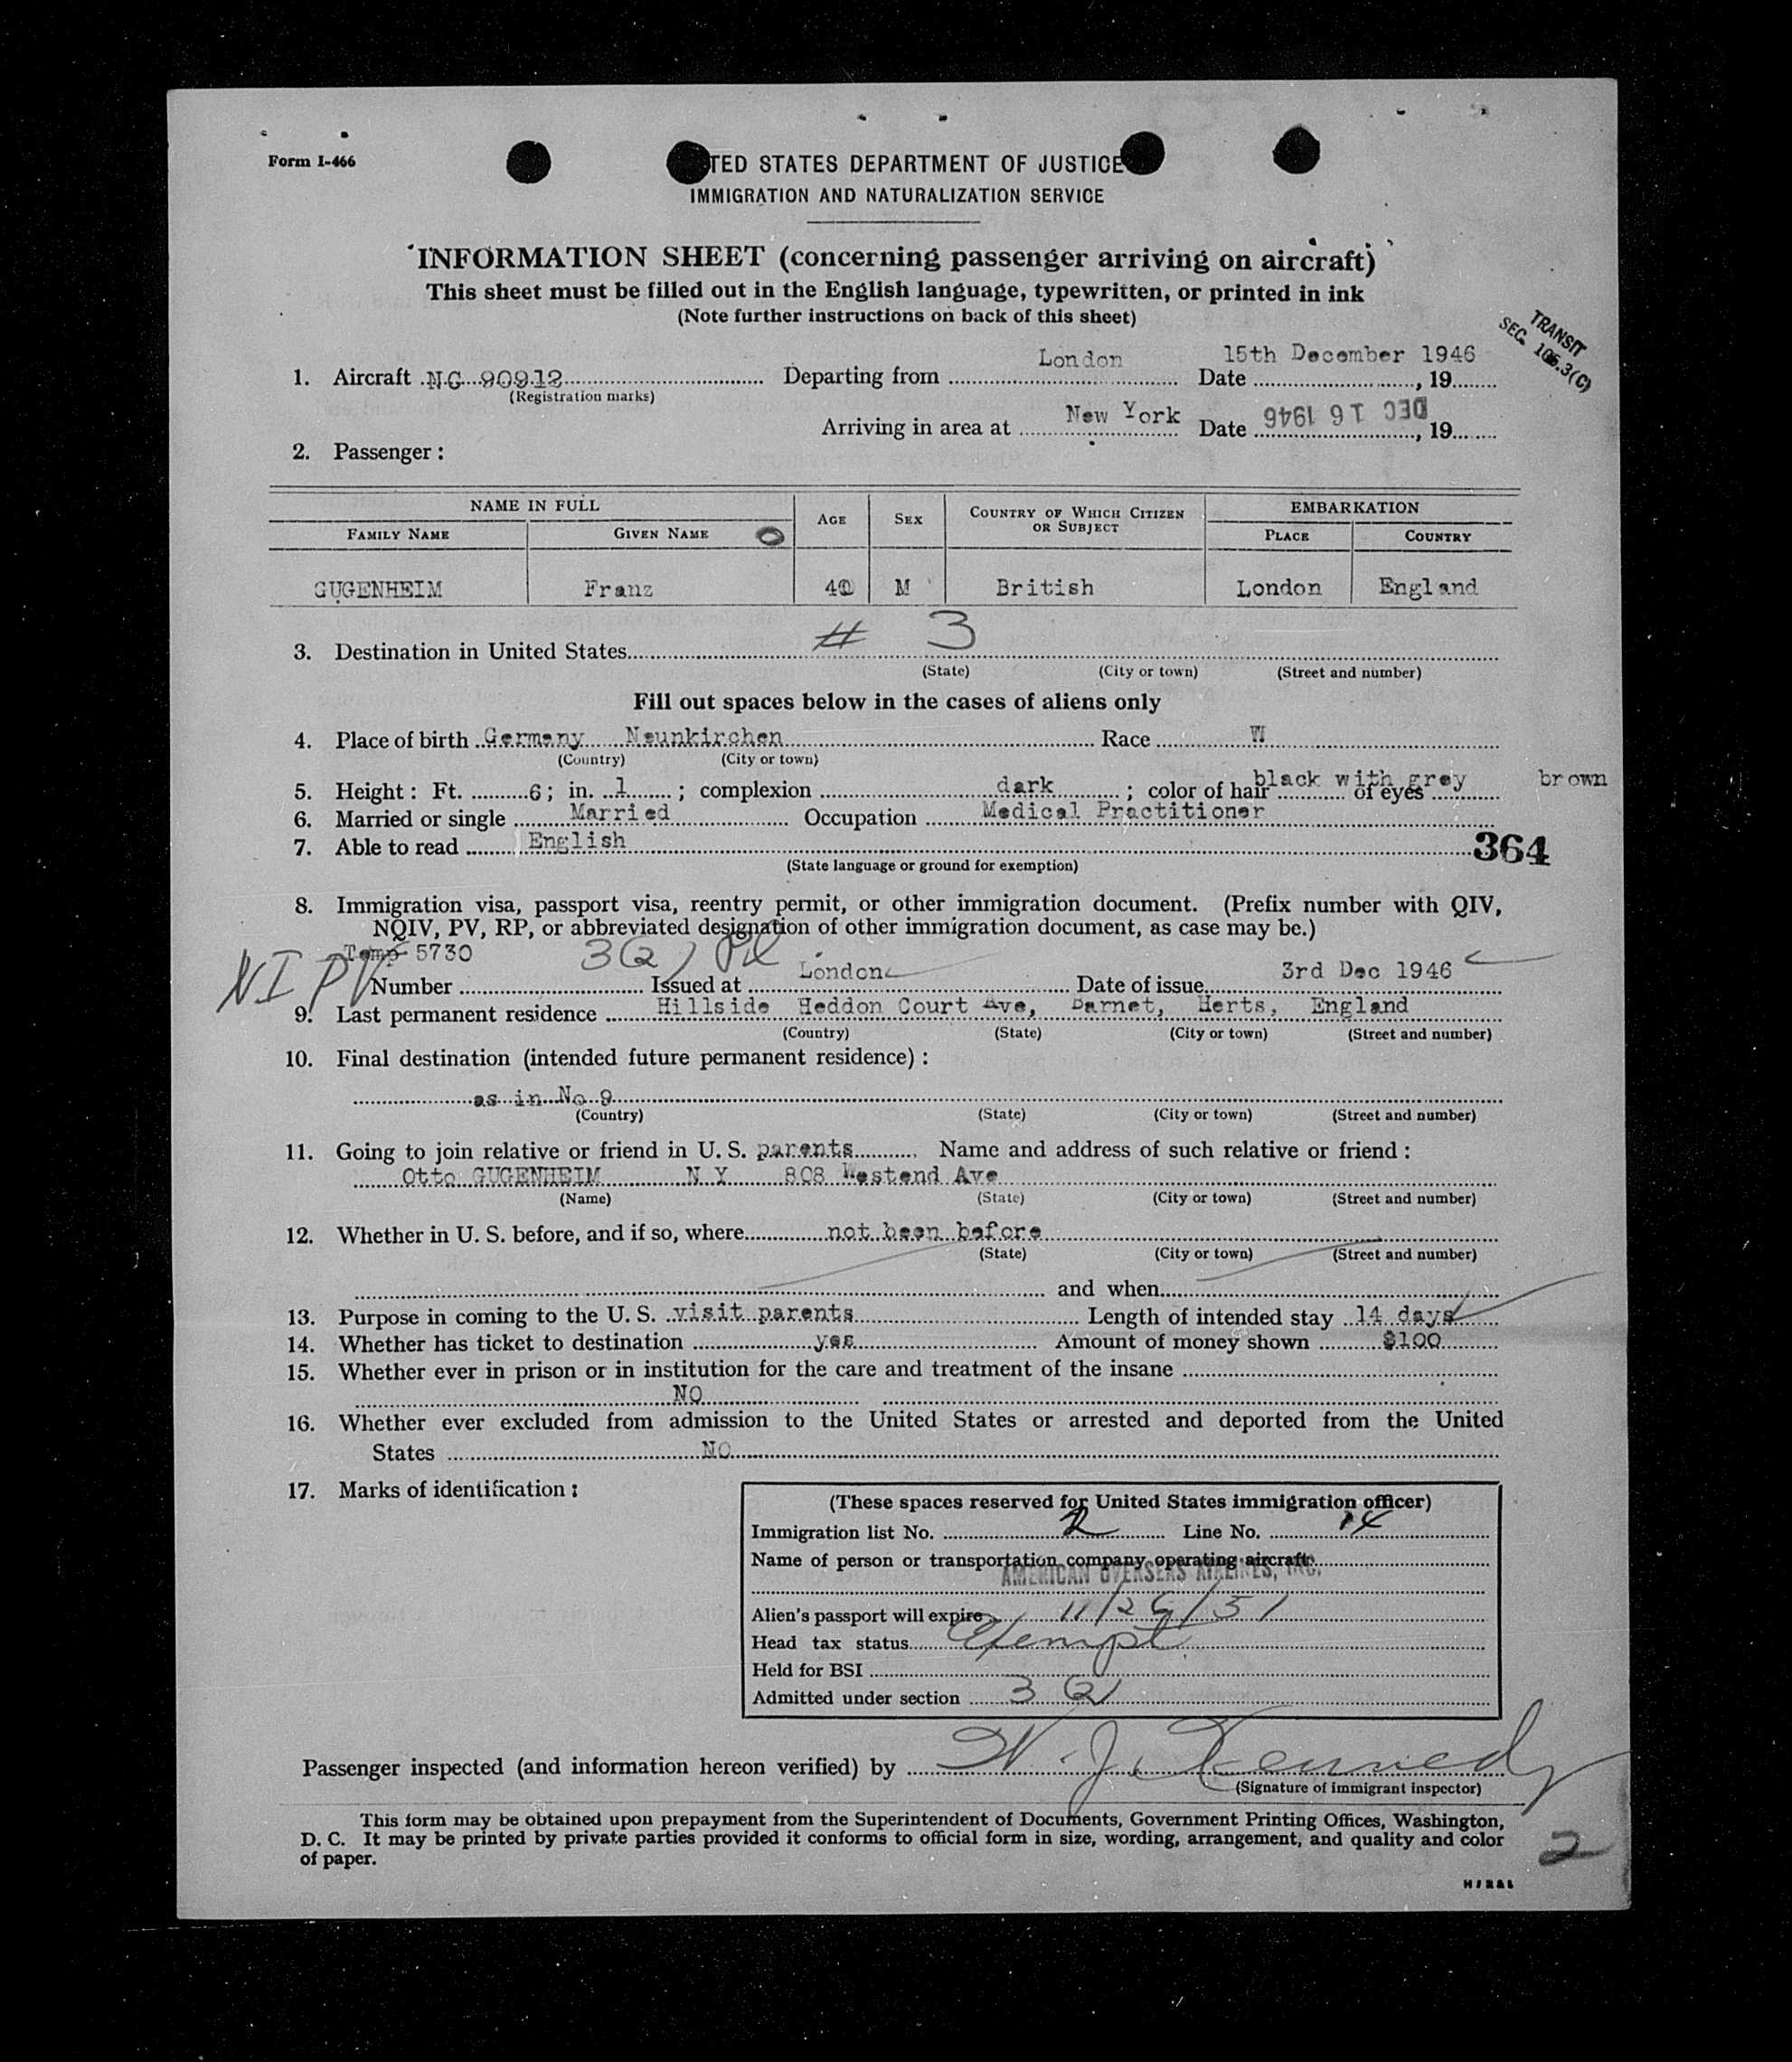 Form I-466
TED STATES DEPARTMENT OF JUSTICE
IMMIGRATION AND NATURALIZATION SERVICE
INFORMATION SHEET (concerning passenger arriving on aircraft)
This sheet must be filled out in the English language, typewritten, or printed in ink
(Note further instructions on back of this sheet)
TRANSIT
SEC. 105.3(C)
1. Aircraft NC 90912 Departing from London Date 15th December 1946, 19
(Registration marks)
Arriving in area at New York Date DEC 16 1946, 19
2. Passenger:
NAME IN FULL AGE SEX COUNTRY OF WHICH CITIZEN OR SUBJECT EMBARKATION
FAMILY NAME GIVEN NAME PLACE COUNTRY
GUGENHEIM Franz M British London England
3. Destination in United States # 3
(State) (City or town) (Street and number)
Fill out spaces below in the cases of aliens only
4. Place of birth Germany Neunkirchen Race W
(Country) (City or town)
5. Height: Ft. 6; in. 1; complexion dark; color of hair black with grey of eyes brown
6. Married or single Married Occupation Medical Practitioner
7. Able to read English 364
(State language or ground for exemption)
8. Immigration visa, passport visa, reentry permit, or other immigration document. (Prefix number with QIV,
NQIV, PV, RP, or abbreviated designation of other immigration document, as case may be.)
Temp 5730 3(2)
NI PV Number Issued at London Date of issue 3rd Dec 1946
9. Last permanent residence Hillside Heddon Court Ave, Barnet, Herts, England
(Country) (State) (City or town) (Street and number)
10. Final destination (intended future permanent residence):
as in No 9
(Country) (State) (City or town) (Street and number)
11. Going to join relative or friend in U. S. parents Name and address of such relative or friend:
Otto GUGENHEIM N Y 808 Westend Ave
(Name) (State) (City or town) (Street and number)
12. Whether in U. S. before, and if so, where not been before
(State) (City or town) (Street and number)
and when
13. Purpose in coming to the U. S. visit parents Length of intended stay 14 days
14. Whether has ticket to destination yes Amount of money shown $100
15. Whether ever in prison or in institution for the care and treatment of the insane
NO
16. Whether ever excluded from admission to the United States or arrested and deported from the United
States NO
17. Marks of identification:
(These spaces reserved for United States immigration officer)
Immigration list No. 2 Line No. 14
Name of person or transportation company operating aircraft
AMERICAN OVERSEAS AIRLINES, INC.
Alien's passport will expire 11/26/51
Head tax status Exempt
Held for BSI
Admitted under section 3(2)
Passenger inspected (and information hereon verified) by W. J. Kennedy
(Signature of immigrant inspector)
This form may be obtained upon prepayment from the Superintendent of Documents, Government Printing Offices, Washington,
D. C. It may be printed by private parties provided it conforms to official form in size, wording, arrangement, and quality and color
of paper.
2